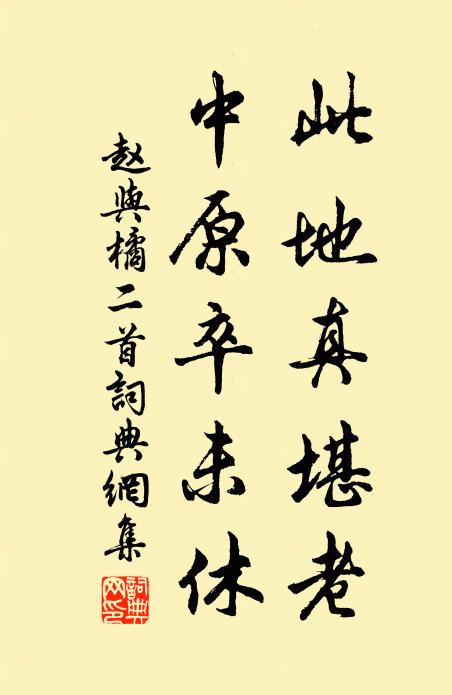 此地真堪老
中原卒未休
赵与橘二首詞典網集
詞典網印